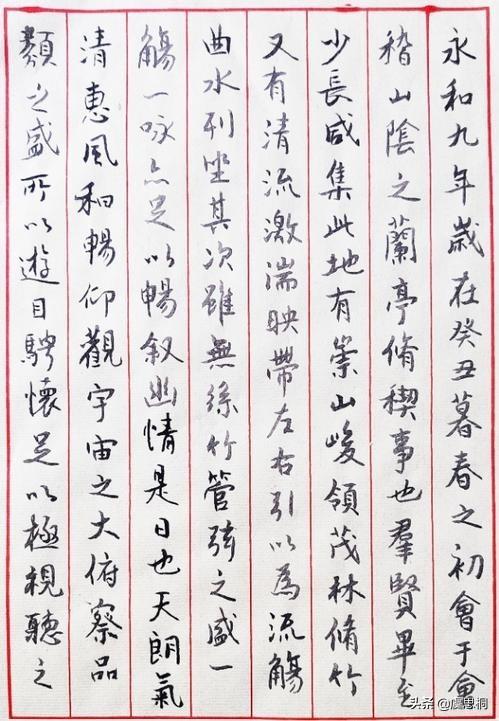 永和九年歲在癸丑暮春之初會于會
稽山陰之蘭亭脩稧事也羣賢畢至
少長咸集此地有崇山峻領茂林脩竹
又有清流激湍映帶左右引以為流觴
曲水列坐其次雖無絲竹管弦之盛一
觴一咏亦足以暢叙幽情是日也天朗氣
清惠風和暢仰觀宇宙之大俯察品
類之盛所以遊目騁懷足以極視聽之
头条 @虞思桐